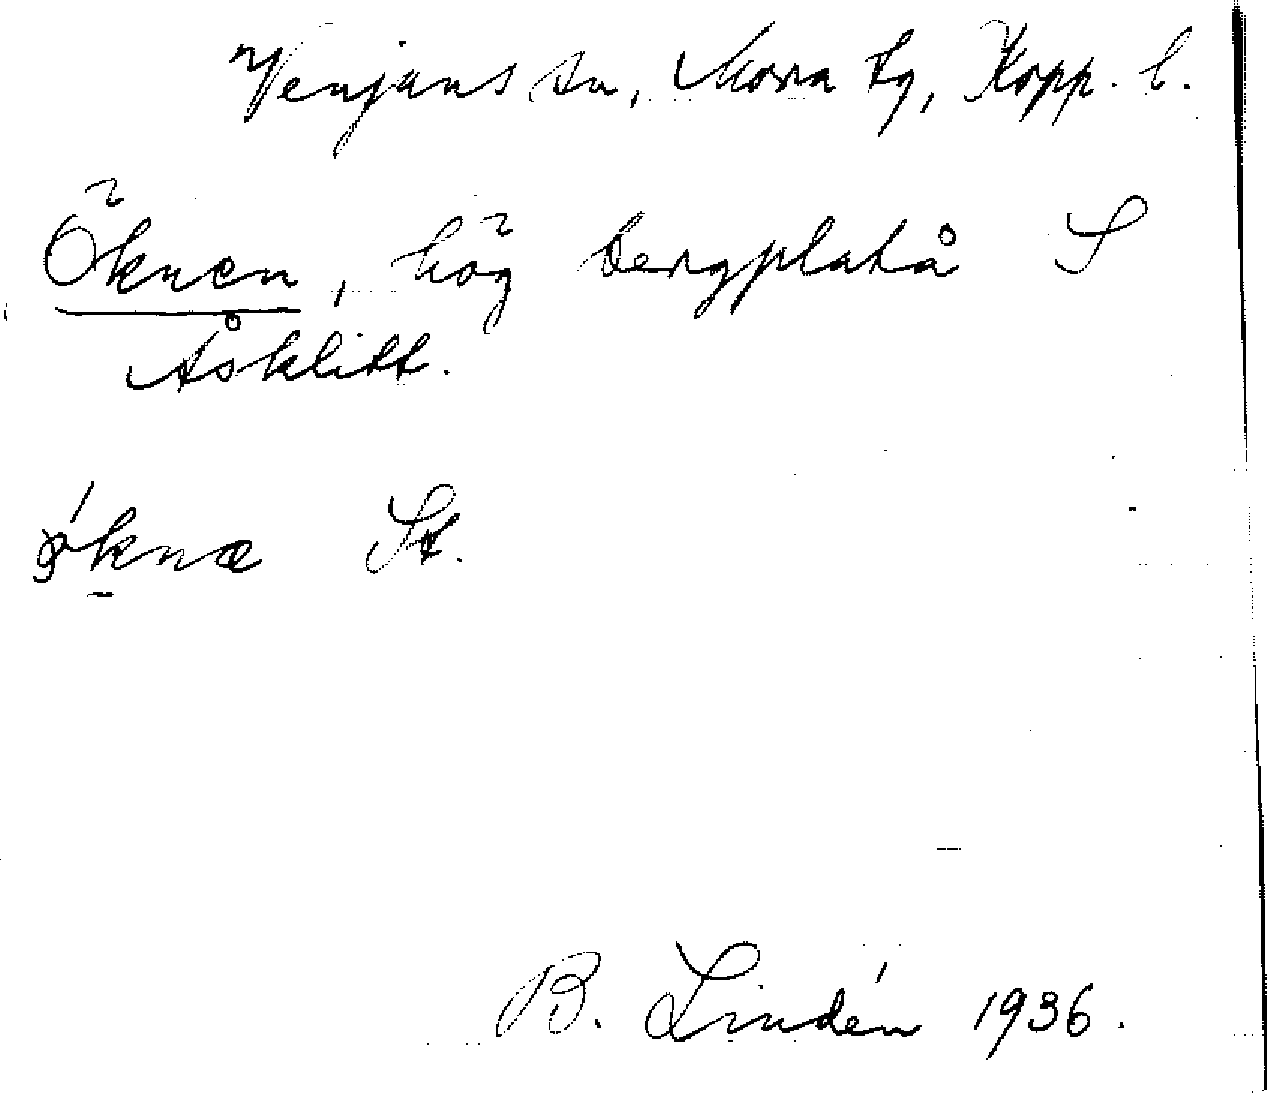 Venjans sn, Mora tg, Kopp. l.
Öknen, hög bergplatå S
Åsklitt.
øknæ St.
B. Lindén 1936.